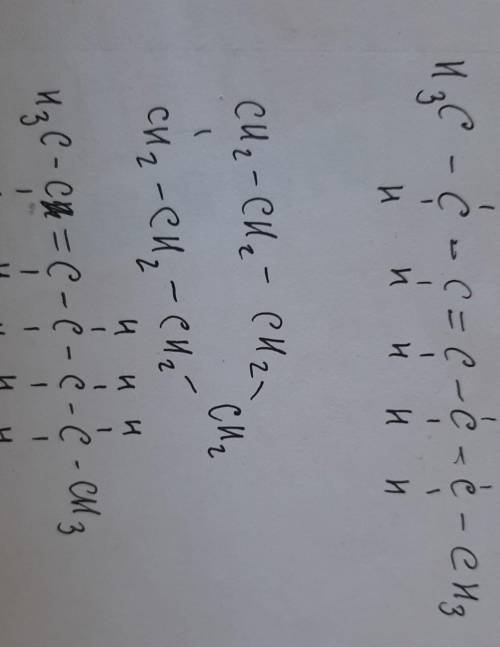 H₃C - C - C = C - C - C - CH₃
H H H H H
CH₂ - CH₂ - CH₂ - CH₂
CH₂ - CH₂ - CH₂ -
H H H
H₃C - C = C - C - C - C - CH₃
H H H H